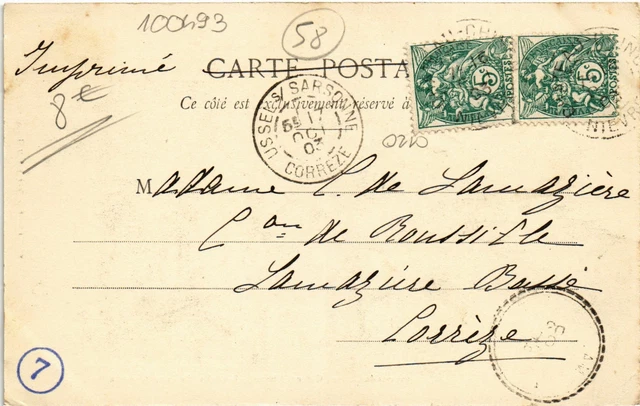 100493
58
Imprimé
CARTE POSTA
8 €
Ce côté est exclusivement réservé à
USSEL S/ SARSONNE
17
03
CORRÈZE
5
5
NIÈV
Madame C. de Lamazière
Con de Roussille
Lamazière Basse
Corrèze
7